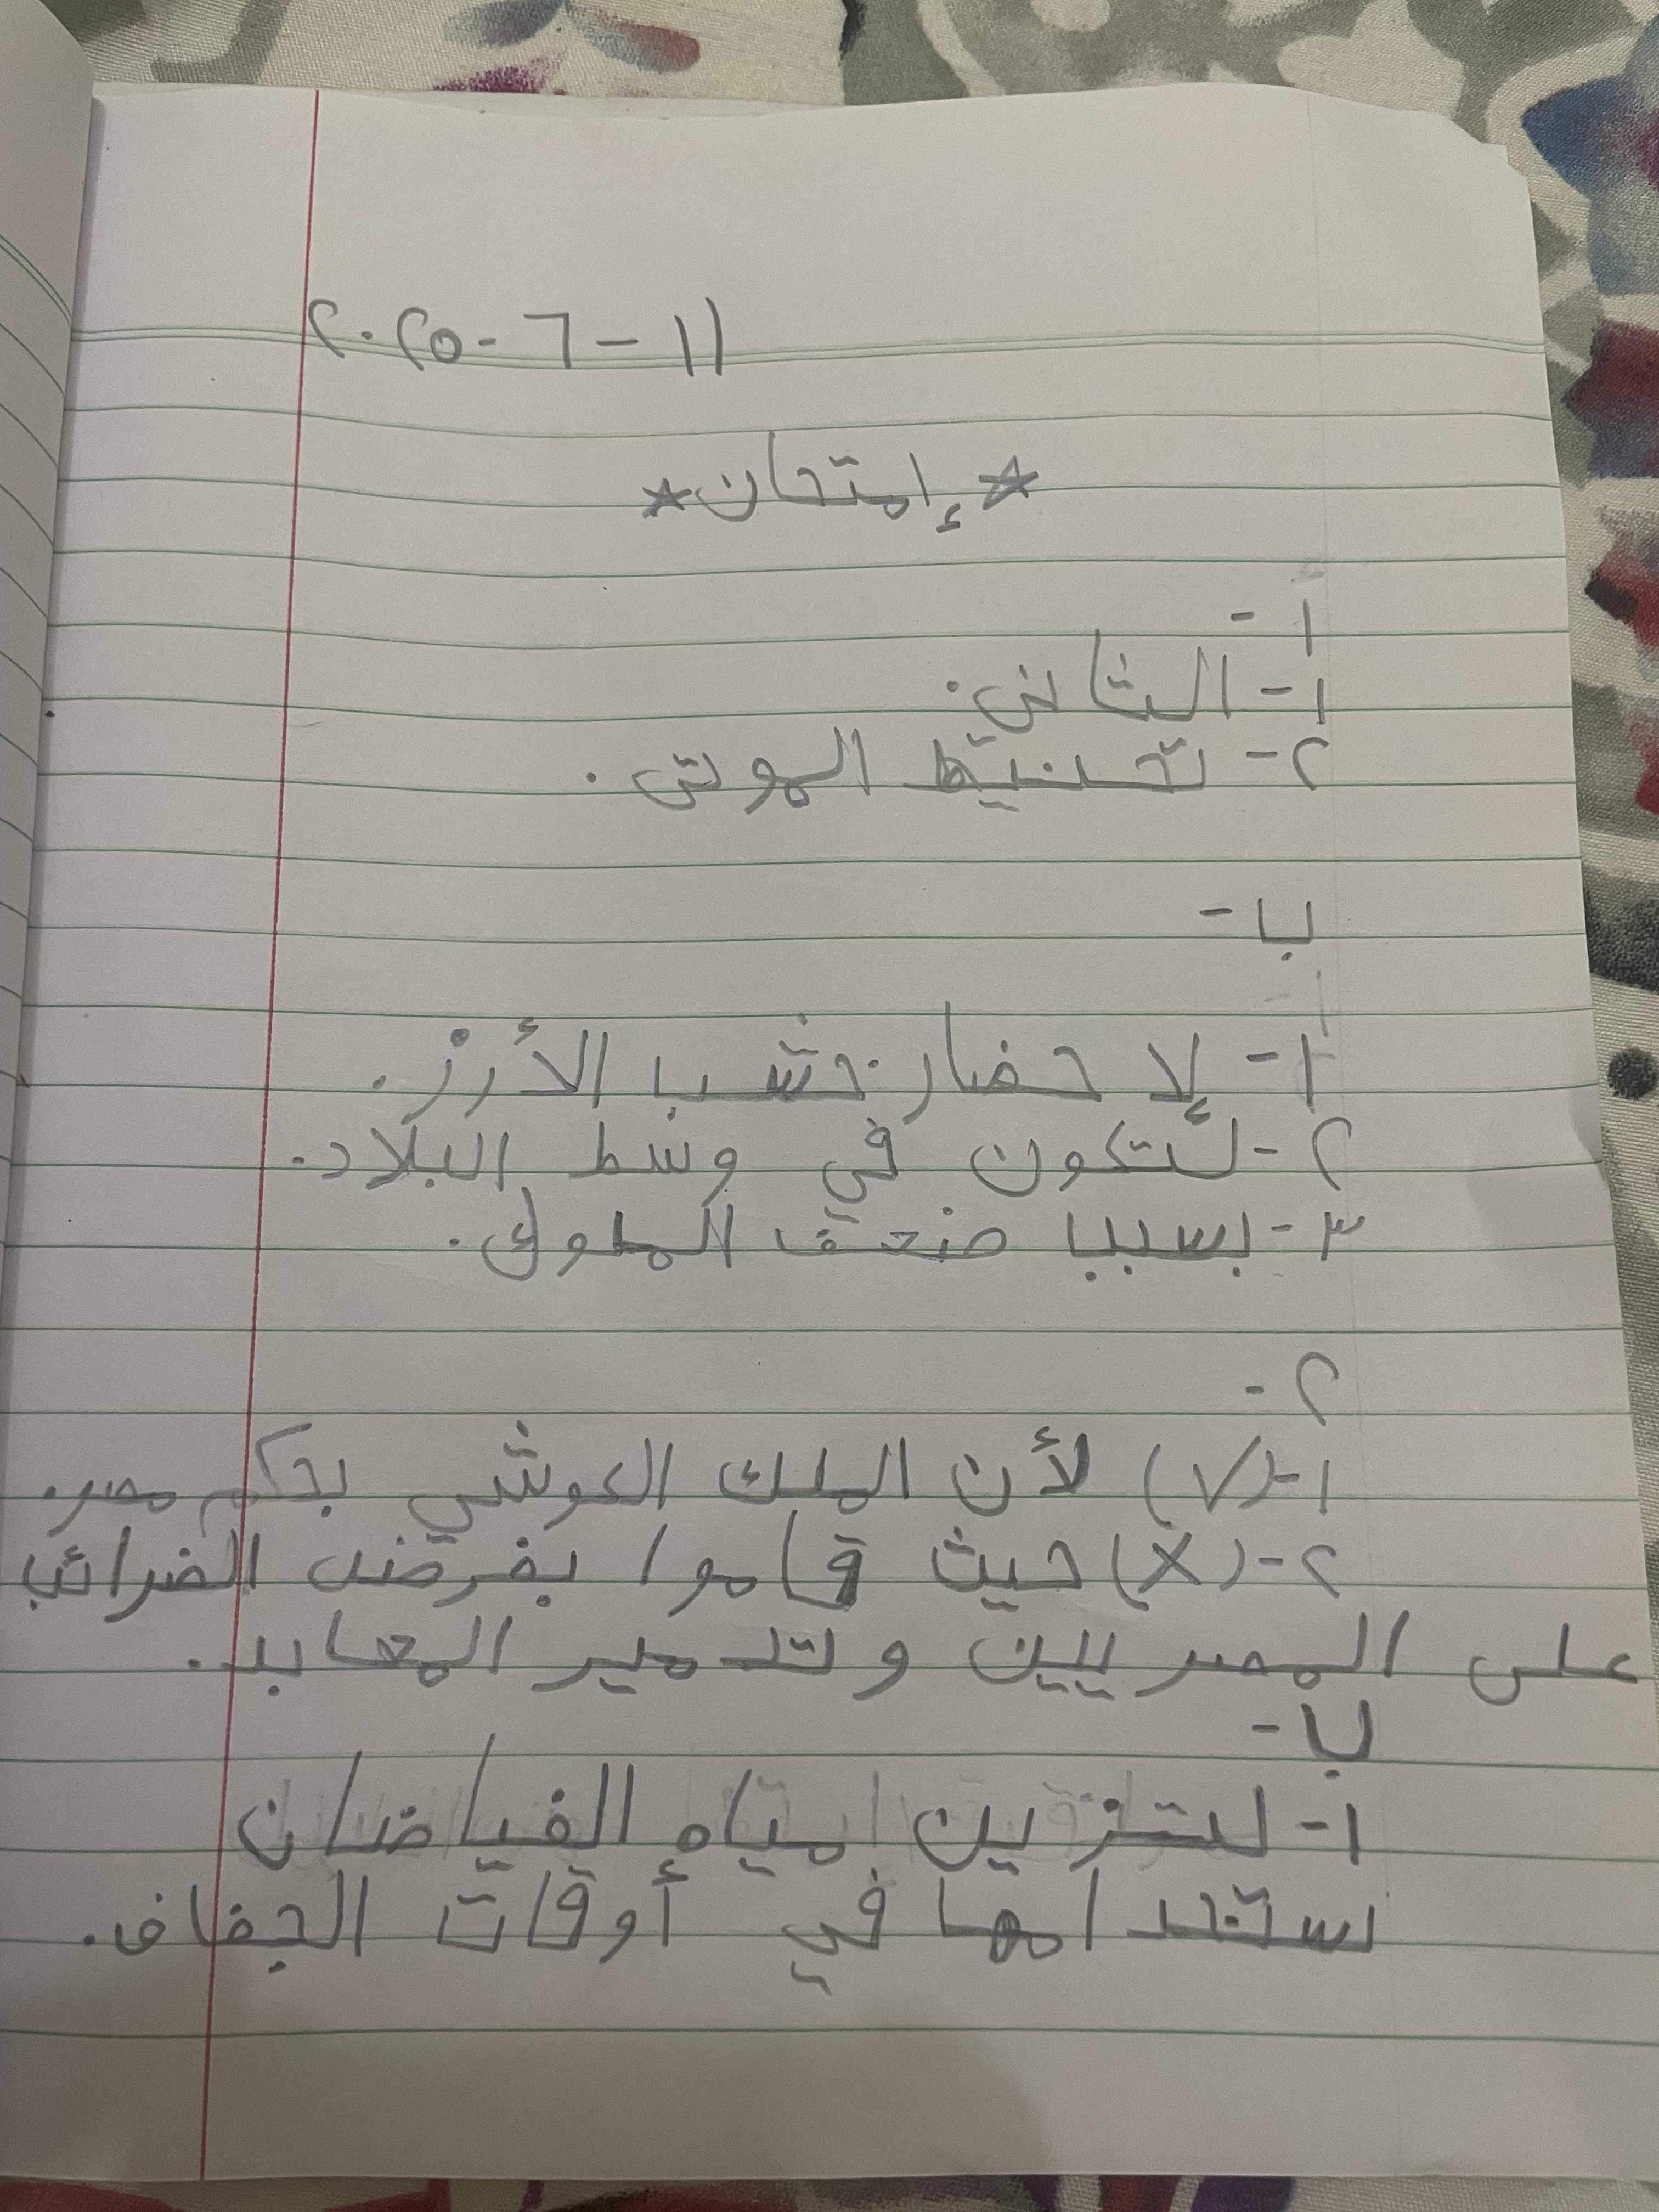 ١١ - ٦ - ٢٠٢٥
☆ إمتحان ☆
أ -
١ - الثانى.
٢ - تحنيط الموتى.
ب -
١ - لإحضار خشب الأرز.
٢ - لتكون في وسط البلاد.
٣ - بسبب ضعف الملوك.
٢ -
١ - (√) لأن الملك الكوشي يحكم مصر.
٢ - (X) حيث قاموا بفرض الضرائب
على المصريين وتدمير المعابد.
ب -
١ - لتخزين مياه الفياضان
ستخدامها في أوقات الجفاف.